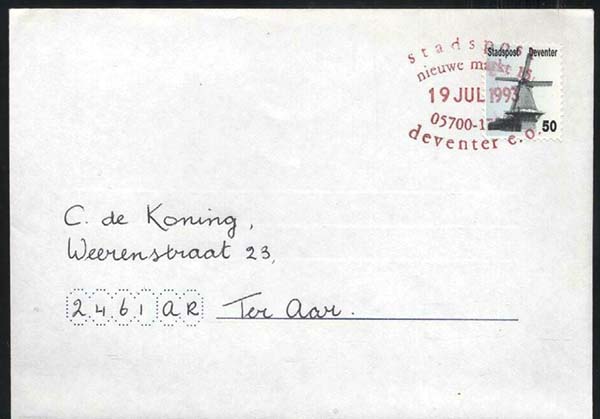 stadspost
Stadspost Deventer
nieuwe markt 15
19 JUL 1993
05700-1
50
deventer e.o.
C. de Koning,
Weerenstraat 23,
2461 AR Ter Aar.